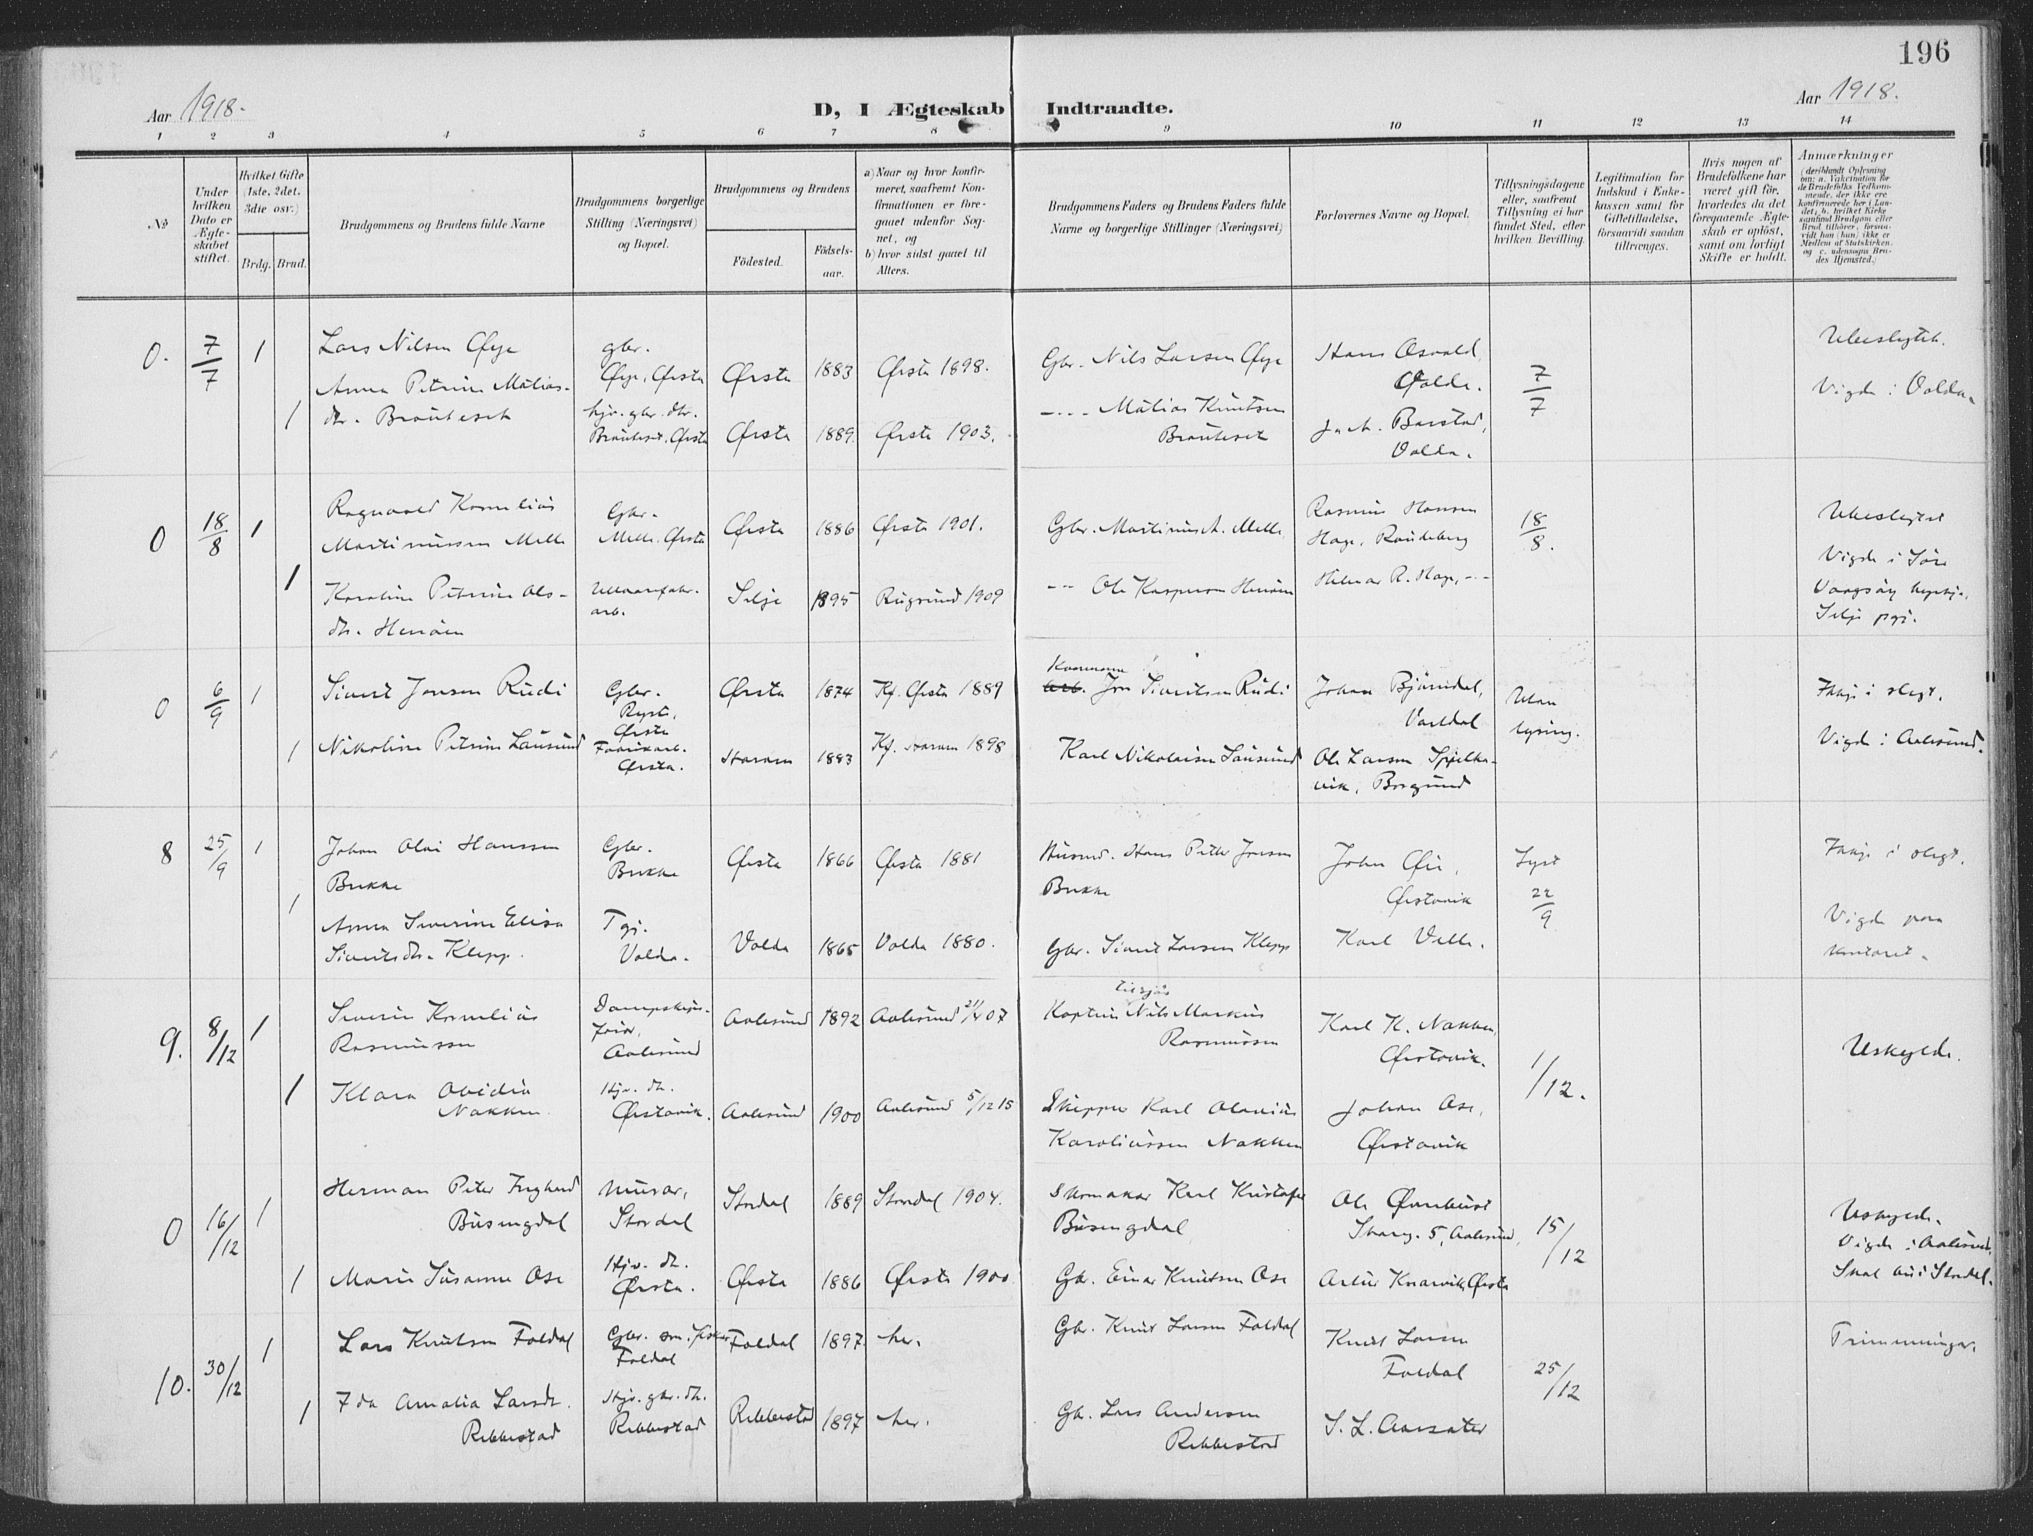 196
Aar 1918.
D, I Ægteskab Indtraadte.
Aar 1918.
1 2 3 4 5 6 7 8 9 10 11 12 13 14
No
Under hvilken Dato er Ægteskabet stiftet.
Hvilket Gifte (1ste, 2det, 3die osv.)
Brdg. Brud.
Brudgommens og Brudens fulde Navne
Brudgommens borgerlige Stilling (Næringsvei) og Bopæl.
Brudgommens og Brudens
Födested. Födselsaar.
a) Naar og hvor konfirmeret, saafremt Konfirmationen er foregaaet udenfor Sognet, og
b) hvor sidst gaaet til Alters.
Brudgommens Faders og Brudens Faders fulde Navne og borgerlige Stillinger (Næringsvei)
Forlovernes Navne og Bopæl.
Tillysningsdagene eller, saafremt Tillysning ei har fundet Sted, efter hvilken Bevilling.
Legitimation for Indskud i Enkekassen samt for Giftetilladelse, forsaavidt saadan tiltrænges.
Hvis nogen af Brudefolkene har været gift før, hvorledes da det foregaaende Ægteskab er opløst, samt om lovligt Skifte er holdt.
Anmærkninger
(deriblandt Oplysning om: a. Vakcination for de Brudefolks Vedkommende, der ikke ere konfirmerede her i Landet; b. hvilket Kirkesamfund Brudgom eller Brud tilhører, forsaavidt han (hun) ikke er Medlem af Statskirken, og c. udensogns Brudes Hjemsted.)
0. 7/7 1 Lars Nilsen Øye
gbr. Øye, Ørsta Ørsta 1883 Ørsta 1898. Gbr. Nils Larsen Øye
Hans Osvald, Volda. 7/7 Ubeslegtet.
1 Anna Petrine Matiasdtr. Brauteset
hjv. gbr. dtr. Brauteset, Ørsta Ørsta 1889. Ørsta 1903. ---- Matias Knutsen Brauteset
Barstad, Volda. Vigde i Volda.
0 18/8 1 Ragnvald Kornelius Martinussen Melle
Gbr. Melle, Ørsta Ørsta 1886 Ørsta 1901. Gbr. Martinus A. Melle
Rasmus Hansen Hage, Raudeberg 18/8. Ubeslegtet
1 Karoline Petrine Olsdtr. Henøen
arb. Selje 1895 Rugsund 1909 --- Ole Kaspersen Henøen
Hilmar R. Hage, --- Vigde i Søre Vaagsøy
Selje pgj.
0 6/9 1 Sivert Jonsen Rudi
Gbr. Ørsta Ørsta 1874 Kf. Ørsta 1889 Jon Sivertsen Rudi
Johan Bjørndal, Vartdal Utan lysing. Ikkje i slegt.
1 Nikoline Petrine Lausund
Fabrikarb. Ørsta. Haram 1883 Kf. Haram 1898 Karl Nikolaisen Lausund
Ole Larsen Spjelkavik, Borgund Vigde i Aalesund.
8 25/9 1 Johan Olai Hanssen Bukke
Gbr. Bukke Ørsta 1866 Ørsta 1881 Husmd. Hans Petter Jonsen Bukke
John Øie, Ørstavik Lyst 22/9 Ikkje i slegt.
1 Anna Severine Elisa Sivertsdtr. Klepp.
Tgj. Volda. Volda 1865 Volda 1880. Gbr. Sivert Larsen Klepp
Karl Velle. Vigde paa kontoret.
9. 8/12 1 Severin Kornelius Rasmussen
Aalesund Aalesund 1892 Aalesund 21/4 07 Kaptein Nils Markus Rasmussen
Karl K. Nakken, Ørstavik. 1/12. Uskylde.
1 Klara Ovidia Nakken
Hjv. dtr. Ørstavik. Aalesund 1900 Aalesund 5/12 15 Skipper Karl Olavius Karoliussen Nakken
Johan Ose, Ørstavik
0 16/12 1 Herman Peter Ingvard Busengdal
Murar, Stordal Stordal 1889 Stordal 1904. Skomakar Karl Kristofer Busengdal
Ole Ørnhust 5, Aalesund, 15/12 Uskylde.
1 Marie Susanne Ose
Hjv. dtr. Ørsta. Ørsta 1886 Ørsta 1900 Gbr. Einar Knutsen Ose
Artur Knarvik, Ørsta Vigde i Aalesund.
Skal bu i Stordal.
10. 30/12 1 Lars Knutsen Foldal
Gbr. son, fiskar Foldal Foldal 1897 her. Gbr. Knut Larsen Foldal
Knut Larsen Foldal 25/12 Trimenninger.
1 Ida Amalia Larsdt. Rebbestad
Hjv. gbr. dtr. Rebbestad Rebbestad 1897 her. Gbr. Lars Andersen Rebbestad
S. L. Aarsæter